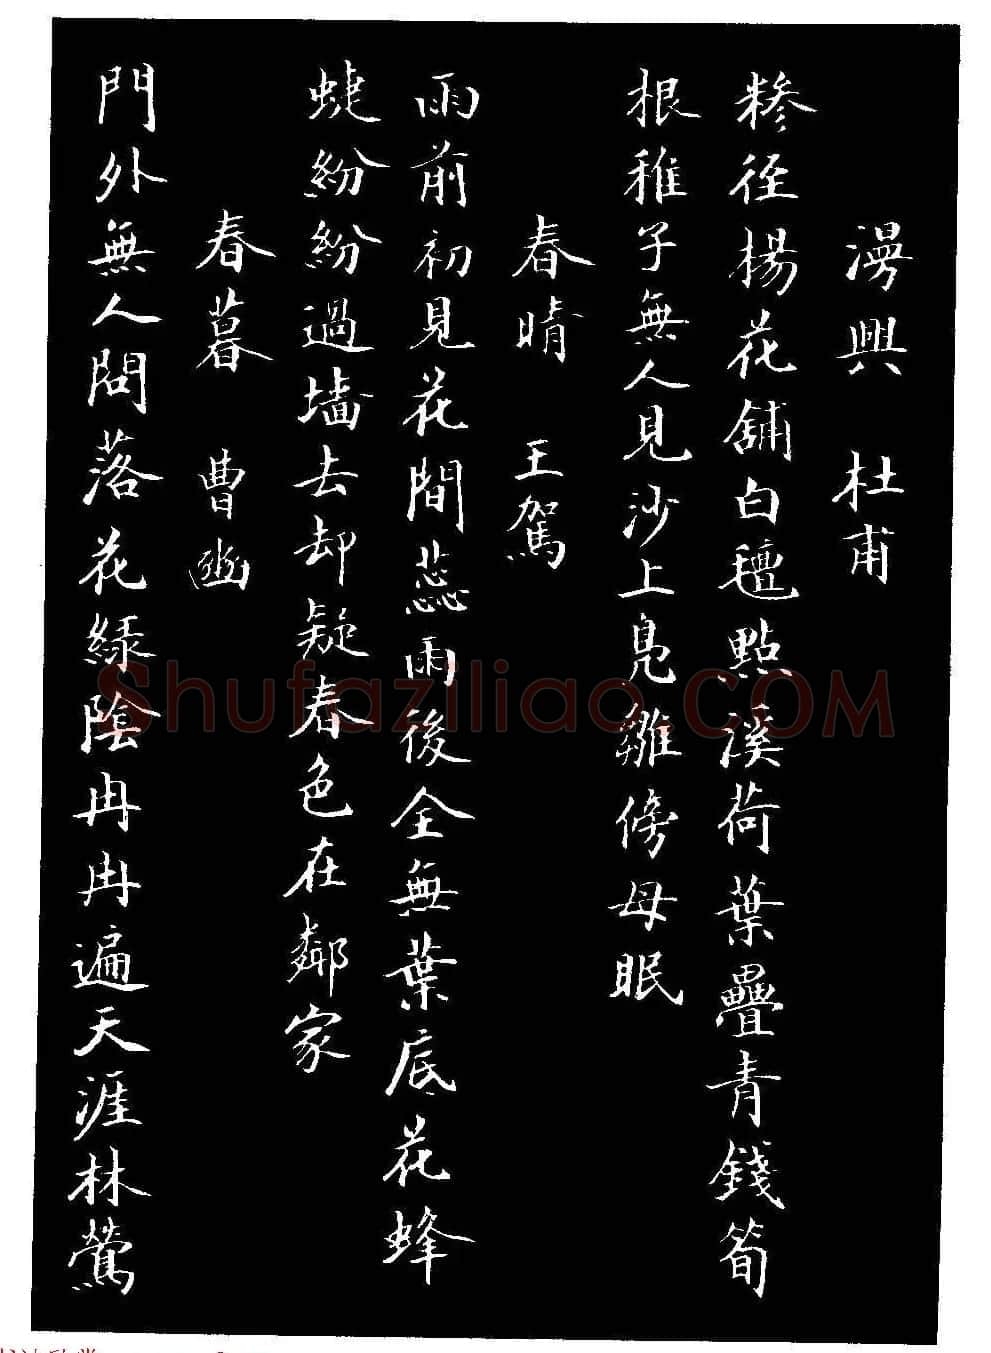 漫興 杜甫
糝徑楊花舖白氊點溪荷葉疊青錢筍
根稚子無人見沙上鳧雛傍母眠
春晴 王駕
雨前初見花間蕊雨後全無葉底花蜂
蜨紛紛過墙去却疑春色在鄰家
春暮 曹豳
門外無人問落花綠陰冉冉遍天涯林鶯
Shufaziliao.COM